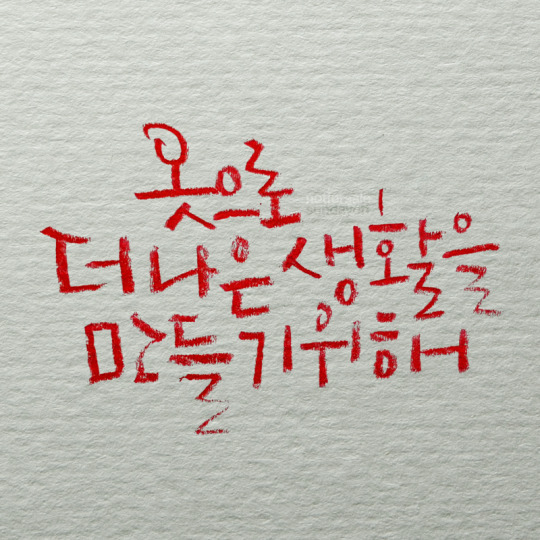 옷으로
더 나은 생활을
만들기 위해